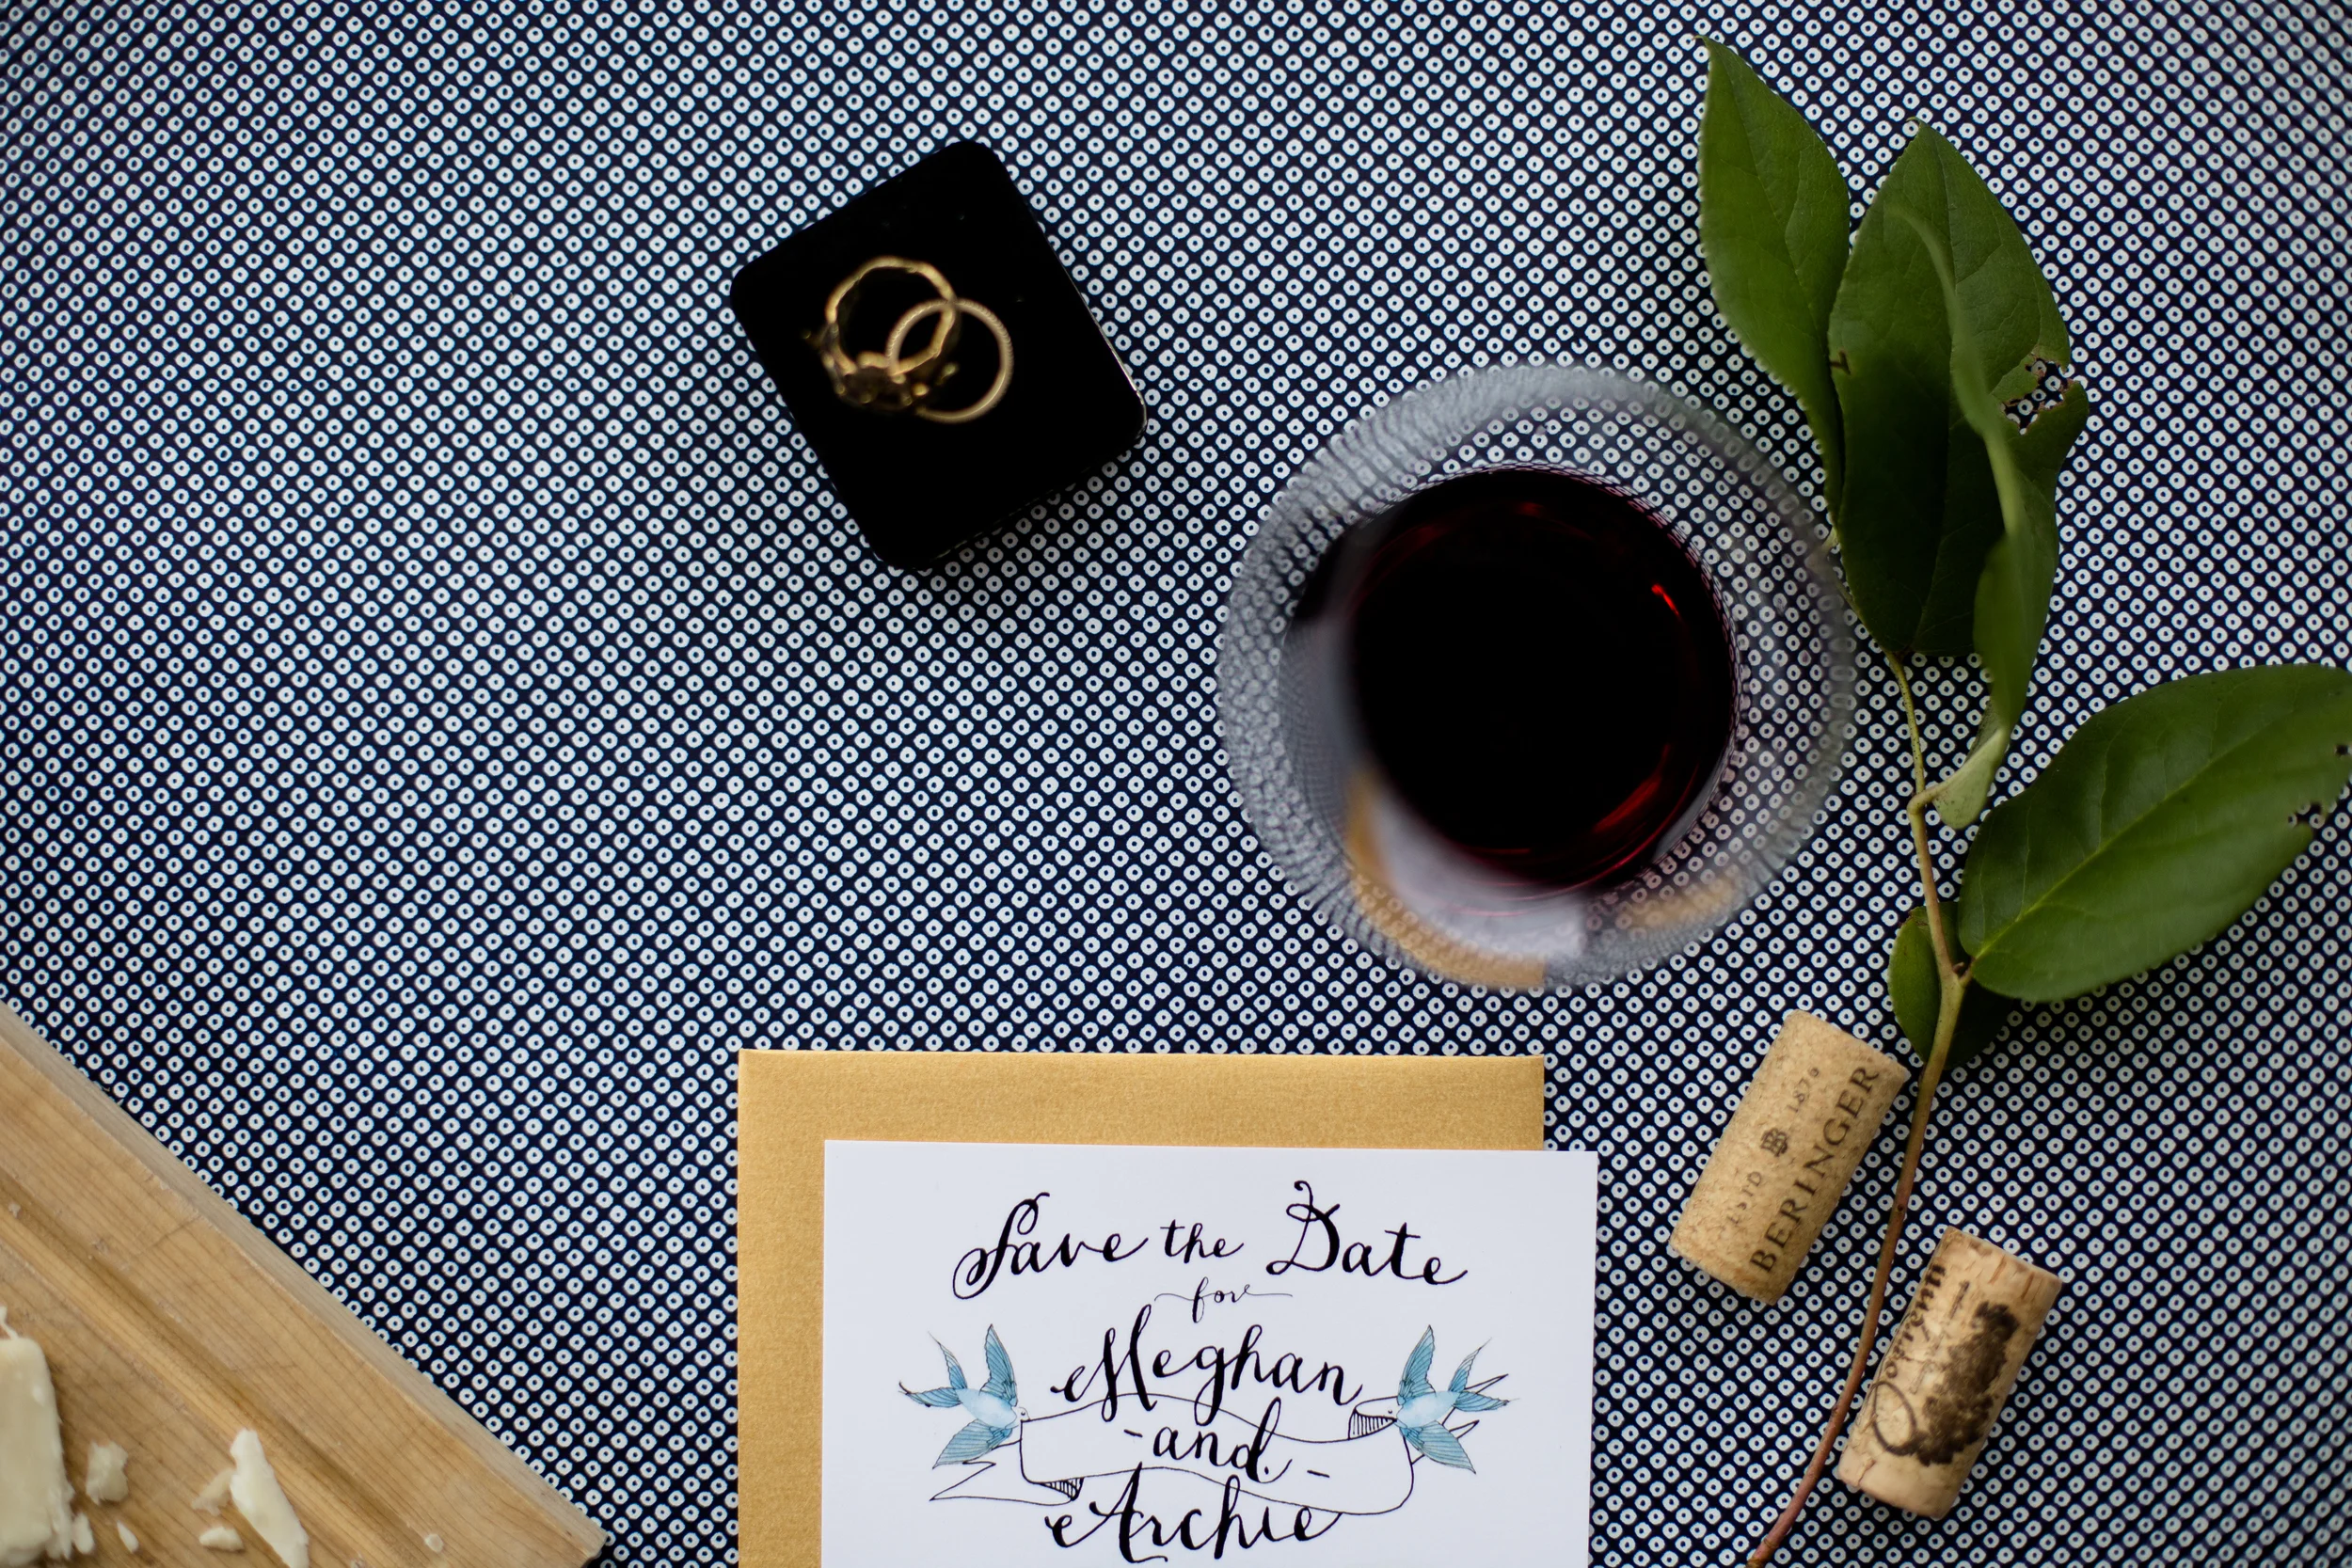 Save the Date
for
Meghan
- and -
Archie
ESTD B 1876
BERINGER